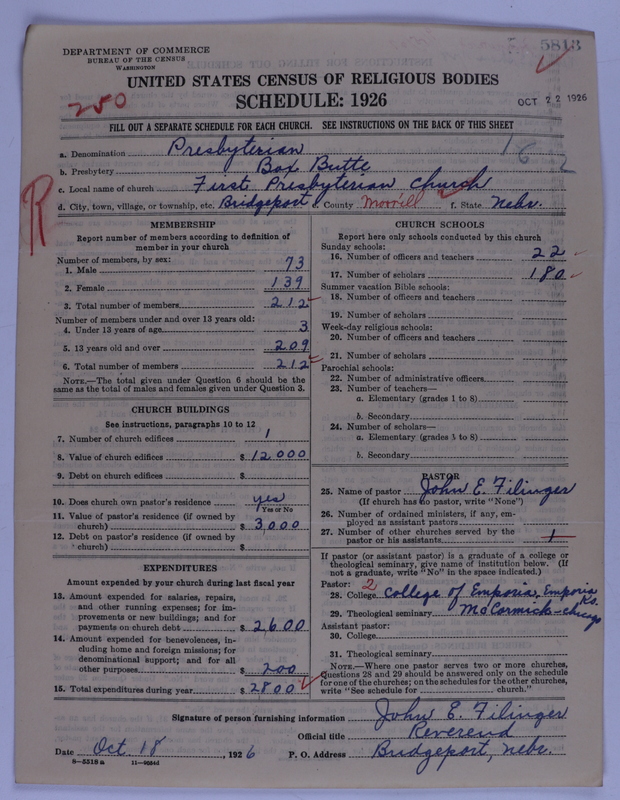 DEPARTMENT OF COMMERCE
BUREAU OF THE CENSUS
WASHINGTON
5813
250
UNITED STATES CENSUS OF RELIGIOUS BODIES
SCHEDULE: 1926
OCT 22 1926
FILL OUT A SEPARATE SCHEDULE FOR EACH CHURCH. SEE INSTRUCTIONS ON THE BACK OF THIS SHEET
162
R
a. Denomination Presbyterian
b. Presbytery Box Butte
c. Local name of church First Presbyterian Church
d. City, town, village, or township, etc. Bridgeport County Morrill f. State Nebr.
MEMBERSHIP
Report number of members according to definition of
member in your church
Number of members, by sex:
1. Male 73
2. Female 139
3. Total number of members 212
Number of members under and over 13 years old:
4. Under 13 years of age 3
5. 13 years old and over 209
6. Total number of members 212
NOTE.—The total given under Question 6 should be the
same as the total of males and females given under Question 3.
CHURCH BUILDINGS
See instructions, paragraphs 10 to 12
7. Number of church edifices 1
8. Value of church edifices $12000
9. Debt on church edifices $
10. Does church own pastor's residence yes
Yes or No
11. Value of pastor's residence (if owned by
church) $3,000
12. Debt on pastor's residence (if owned by
church) $
EXPENDITURES
Amount expended by your church during last fiscal year
13. Amount expended for salaries, repairs,
and other running expenses; for im-
provements or new buildings; and for
payments on church debt $2600
14. Amount expended for benevolences, in-
cluding home and foreign missions; for
denominational support; and for all
other purposes $200
15. Total expenditures during year $2800
CHURCH SCHOOLS
Report here only schools conducted by this church
Sunday schools:
16. Number of officers and teachers 22
17. Number of scholars 180
Summer vacation Bible schools:
18. Number of officers and teachers
19. Number of scholars
Week-day religious schools:
20. Number of officers and teachers
21. Number of scholars
Parochial schools:
22. Number of administrative officers
23. Number of teachers—
a. Elementary (grades 1 to 8)
b. Secondary
24. Number of scholars—
a. Elementary (grades 1 to 8)
b. Secondary
PASTOR
25. Name of pastor John E. Filinger
(If church has no pastor, write "None")
26. Number of ordained ministers, if any, em-
ployed as assistant pastors
27. Number of other churches served by the
pastor or his assistants 1
If pastor (or assistant pastor) is a graduate of a college or
theological seminary, give name of institution below. (If
not a graduate, write "No" in the space indicated.)
Pastor: 2
28. College College of Emporia, Emporia Ks.
29. Theological seminary McCormick-Chicago
Assistant pastor:
30. College
31. Theological seminary
NOTE.—Where one pastor serves two or more churches,
Questions 28 and 29 should be answered only on the schedule
for one of the churches; on the schedules for the other churches,
write "See schedule for church."
Signature of person furnishing information John E. Filinger
Official title Reverend
Date Oct 18, 1926 P. O. Address Bridgeport, Nebr.
8—5518 a